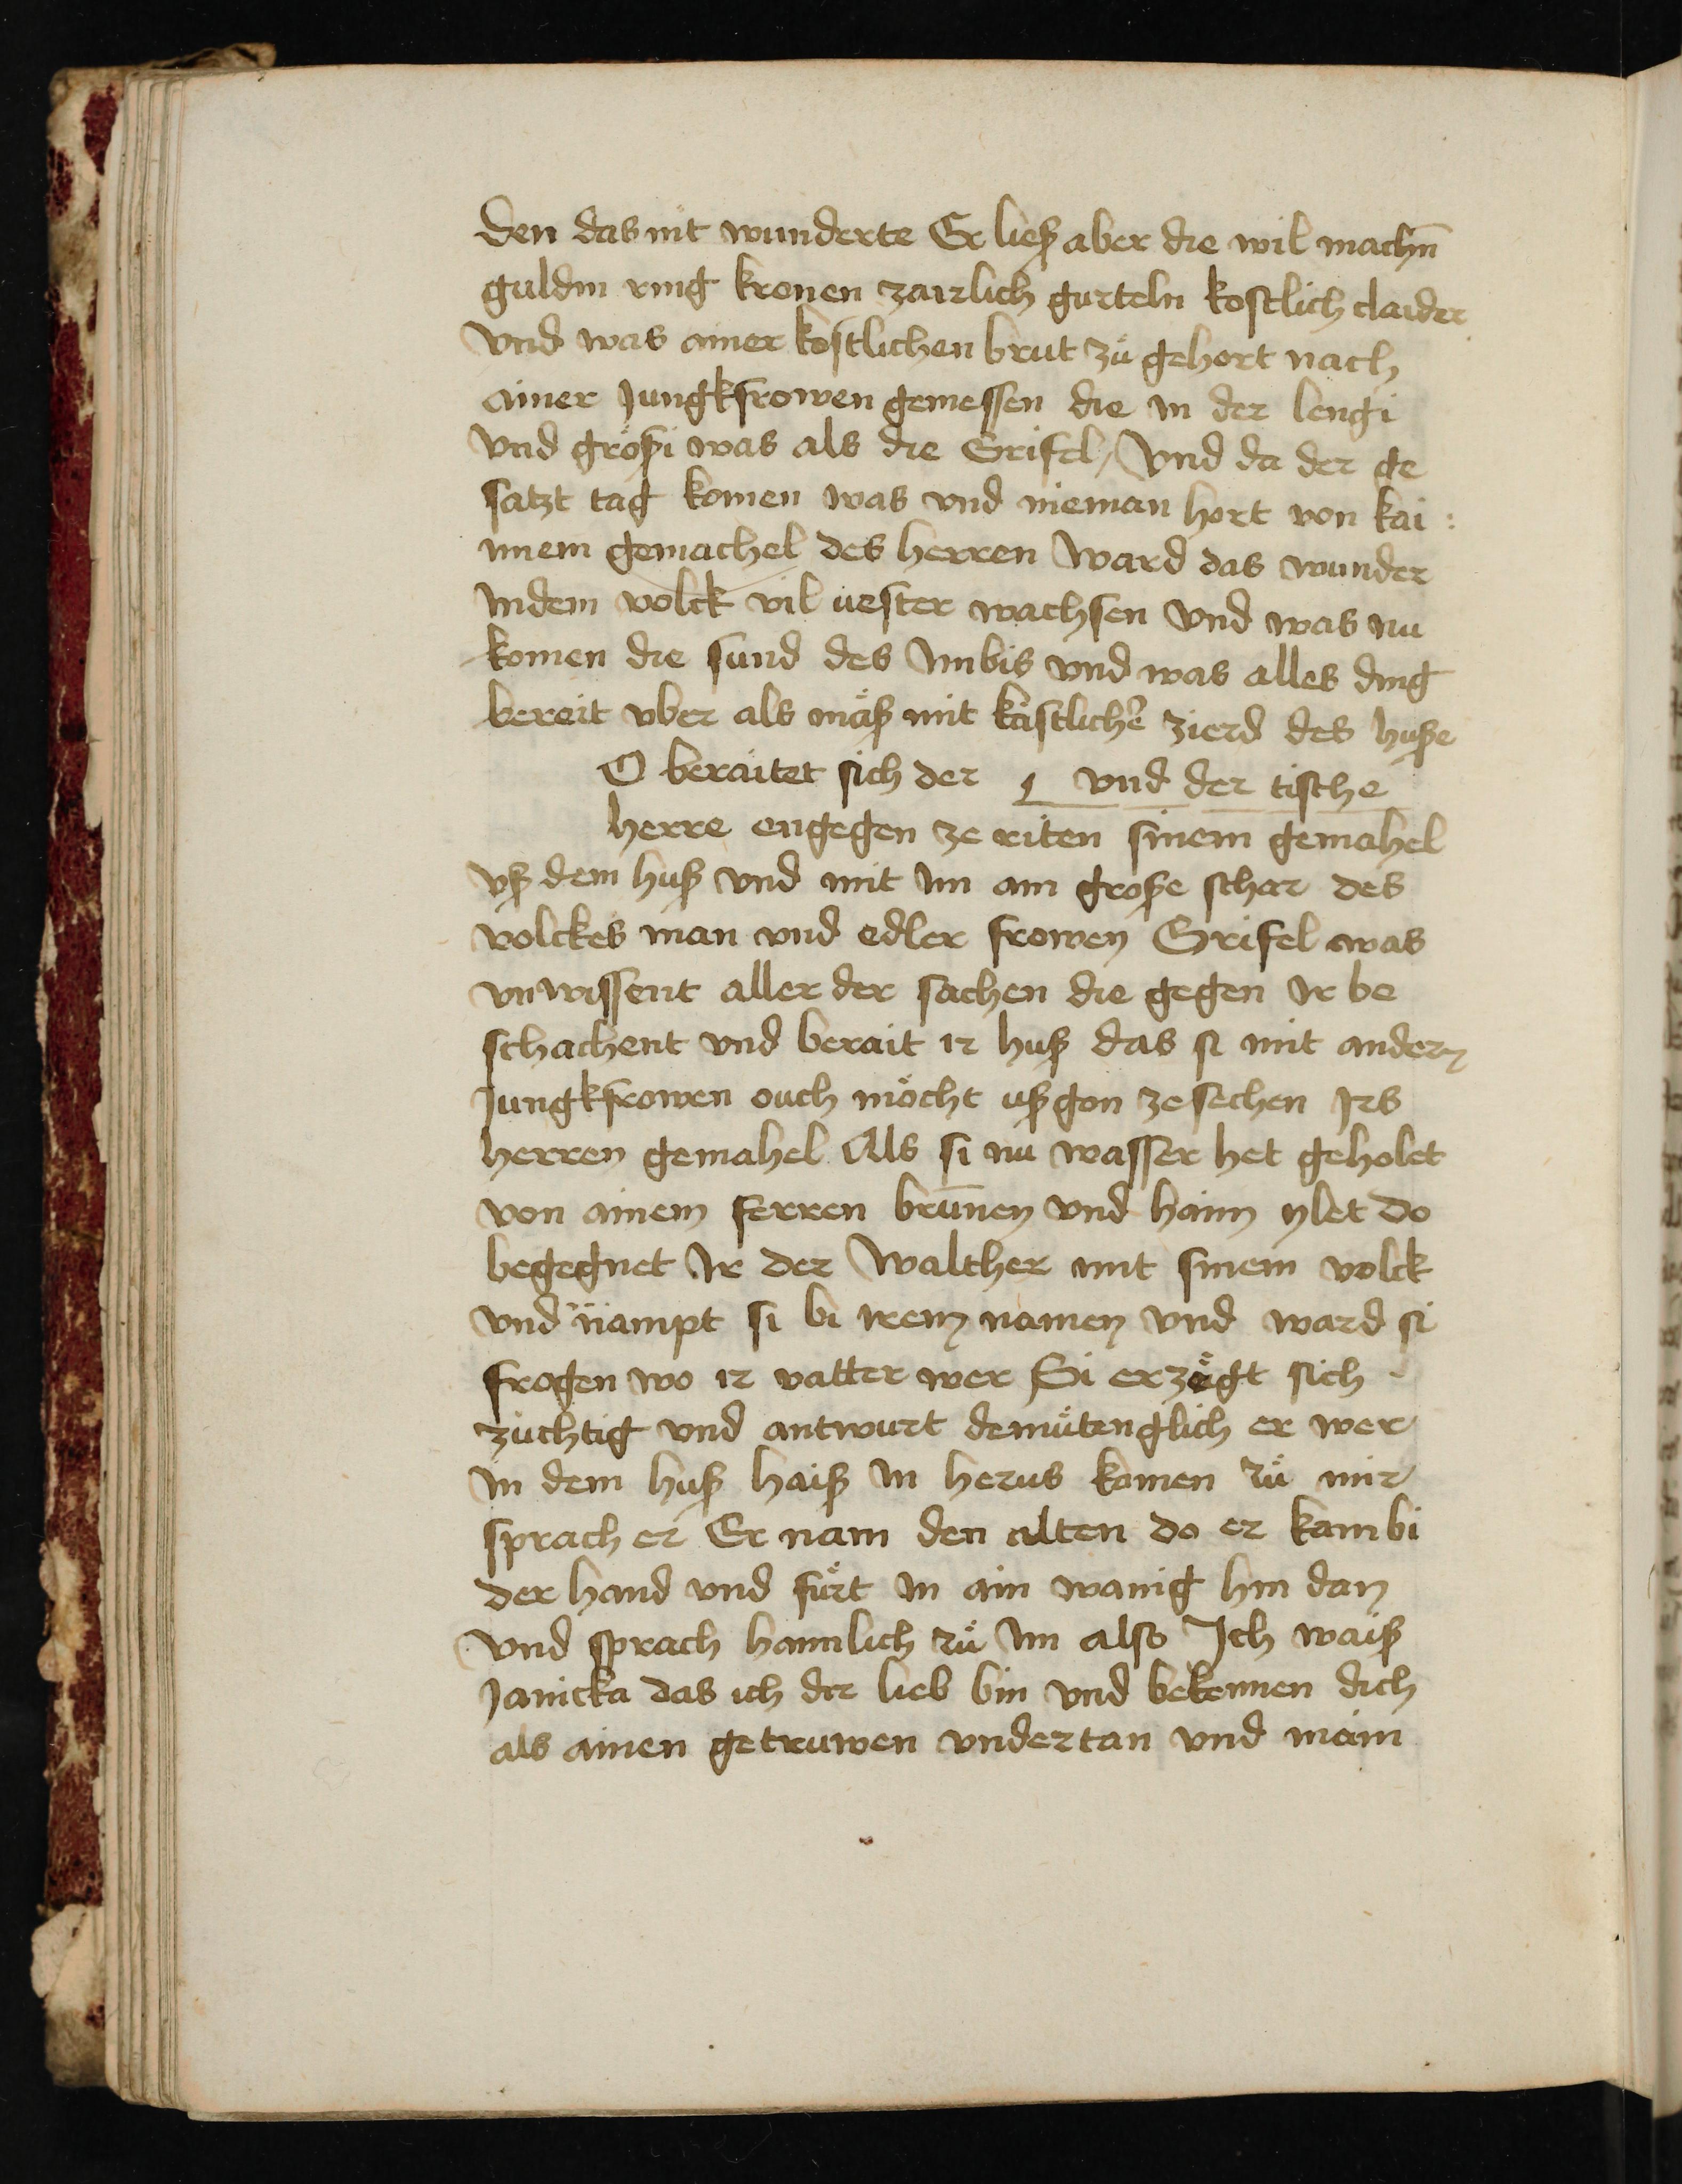 den das nit wunderte Er liesß aber die wil machn̄
guldin ring kronen zairlich gurteln kostlich claider
vnd was ainer kostlichen brut zů gehort nach
ainer Jungkfrowen gemessen die in der lengi
vnd größi was als die Grisel / Vnd da der ge
satzt tag komen was vnd nieman hort von kai :
nnem gemachel des herren Ward das wunder
indem volck vil uester wachsen Vnd was nu
komen die sund des Imbis vnd was alles ding
bereit vber als mäß mit kästlichē zierd des huße
O beraitet sich der vnd der tische
herre engegen ze riten sinem gemahel
vß dem huß vnd mit im ain große schar des
volckes man vnd edler frowen Grisel was
vnwissent aller der sachen die gegen Ir be
schachent vnd berait ir huß das si mit andern
Jungkfrowen ouch möcht ußgon ze sechen Irs
herren gemahel Als si nu wasser het geholet
von ainem ferren brūnen vnd haim ylet do
begegnet Ir der Walther mit sinem volck
vnd nampt si bi irem namen vnd ward si
frogen wo ir vatter wer Si erzögt sich
züchtig vnd antwurt demůtenglich er wer
in dem huß haiß in herus komen zů mir
sprach er Er nam den alten do er kam bi
der hand vnd fůrt in ain wanig hin dan
vnd sprach hamlich zů im also Ich waiß
Janicka das ich dir lieb bin vnd bekennen dich
als ainen getruwen vndertan vnd main